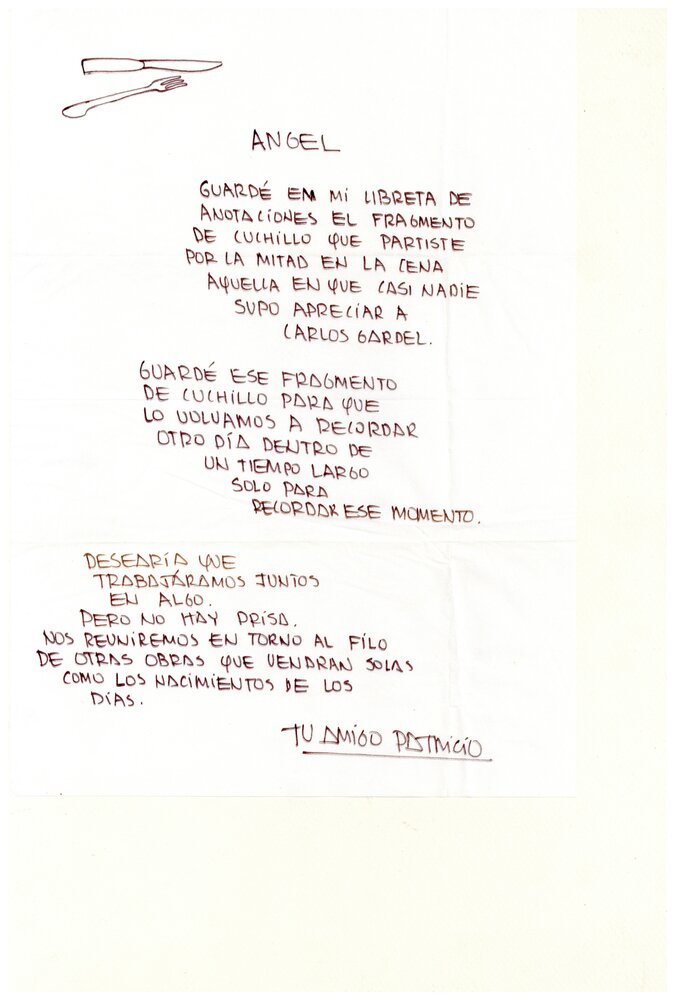 ANGEL
GUARDÉ EN MI LIBRETA DE
ANOTACIONES EL FRAGMENTO
DE CUCHILLO QUE PARTISTE
POR LA MITAD EN LA CENA
AQUELLA EN QUE CASI NADIE
SUPO APRECIAR A
CARLOS GARDEL.
GUARDÉ ESE FRAGMENTO
DE CUCHILLO PARA QUE
LO VOLVAMOS A RECORDAR
OTRO DÍA DENTRO DE
UN TIEMPO LARGO
SOLO PARA
RECORDAR ESE MOMENTO.
DESEARÍA QUE
TRABAJÁRAMOS JUNTOS
EN ALGO.
PERO NO HAY PRISA.
NOS REUNIREMOS EN TORNO AL FILO
DE OTRAS OBRAS QUE VENDRAN SOLAS
COMO LOS NACIMIENTOS DE LOS
DÍAS.
TU AMIGO PATRICIO